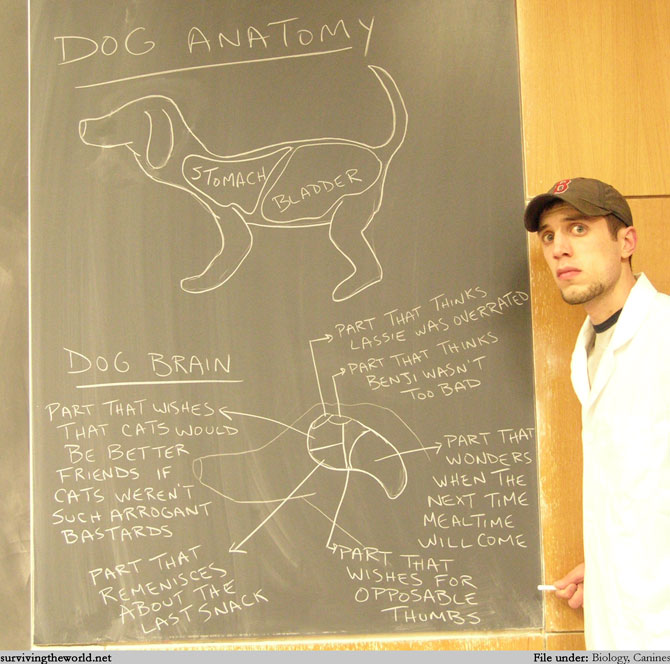 DOG ANATOMY
STOMACH
BLADDER
PART THAT THINKS
LASSIE WAS OVERRATED
PART THAT THINKS
BENJI WASN'T
TOO BAD
DOG BRAIN
PART THAT WISHES
THAT CATS WOULD
BE BETTER
FRIENDS IF
CATS WEREN'T
SUCH ARROGANT
BASTARDS
PART THAT
WONDERS
WHEN THE
NEXT TIME
MEALTIME
WILL COME
PART THAT
REMENISCES
ABOUT THE
LAST SNACK
PART THAT
WISHES FOR
OPPOSABLE
THUMBS
B
survivingtheworld.net
File under: Biology, Canines